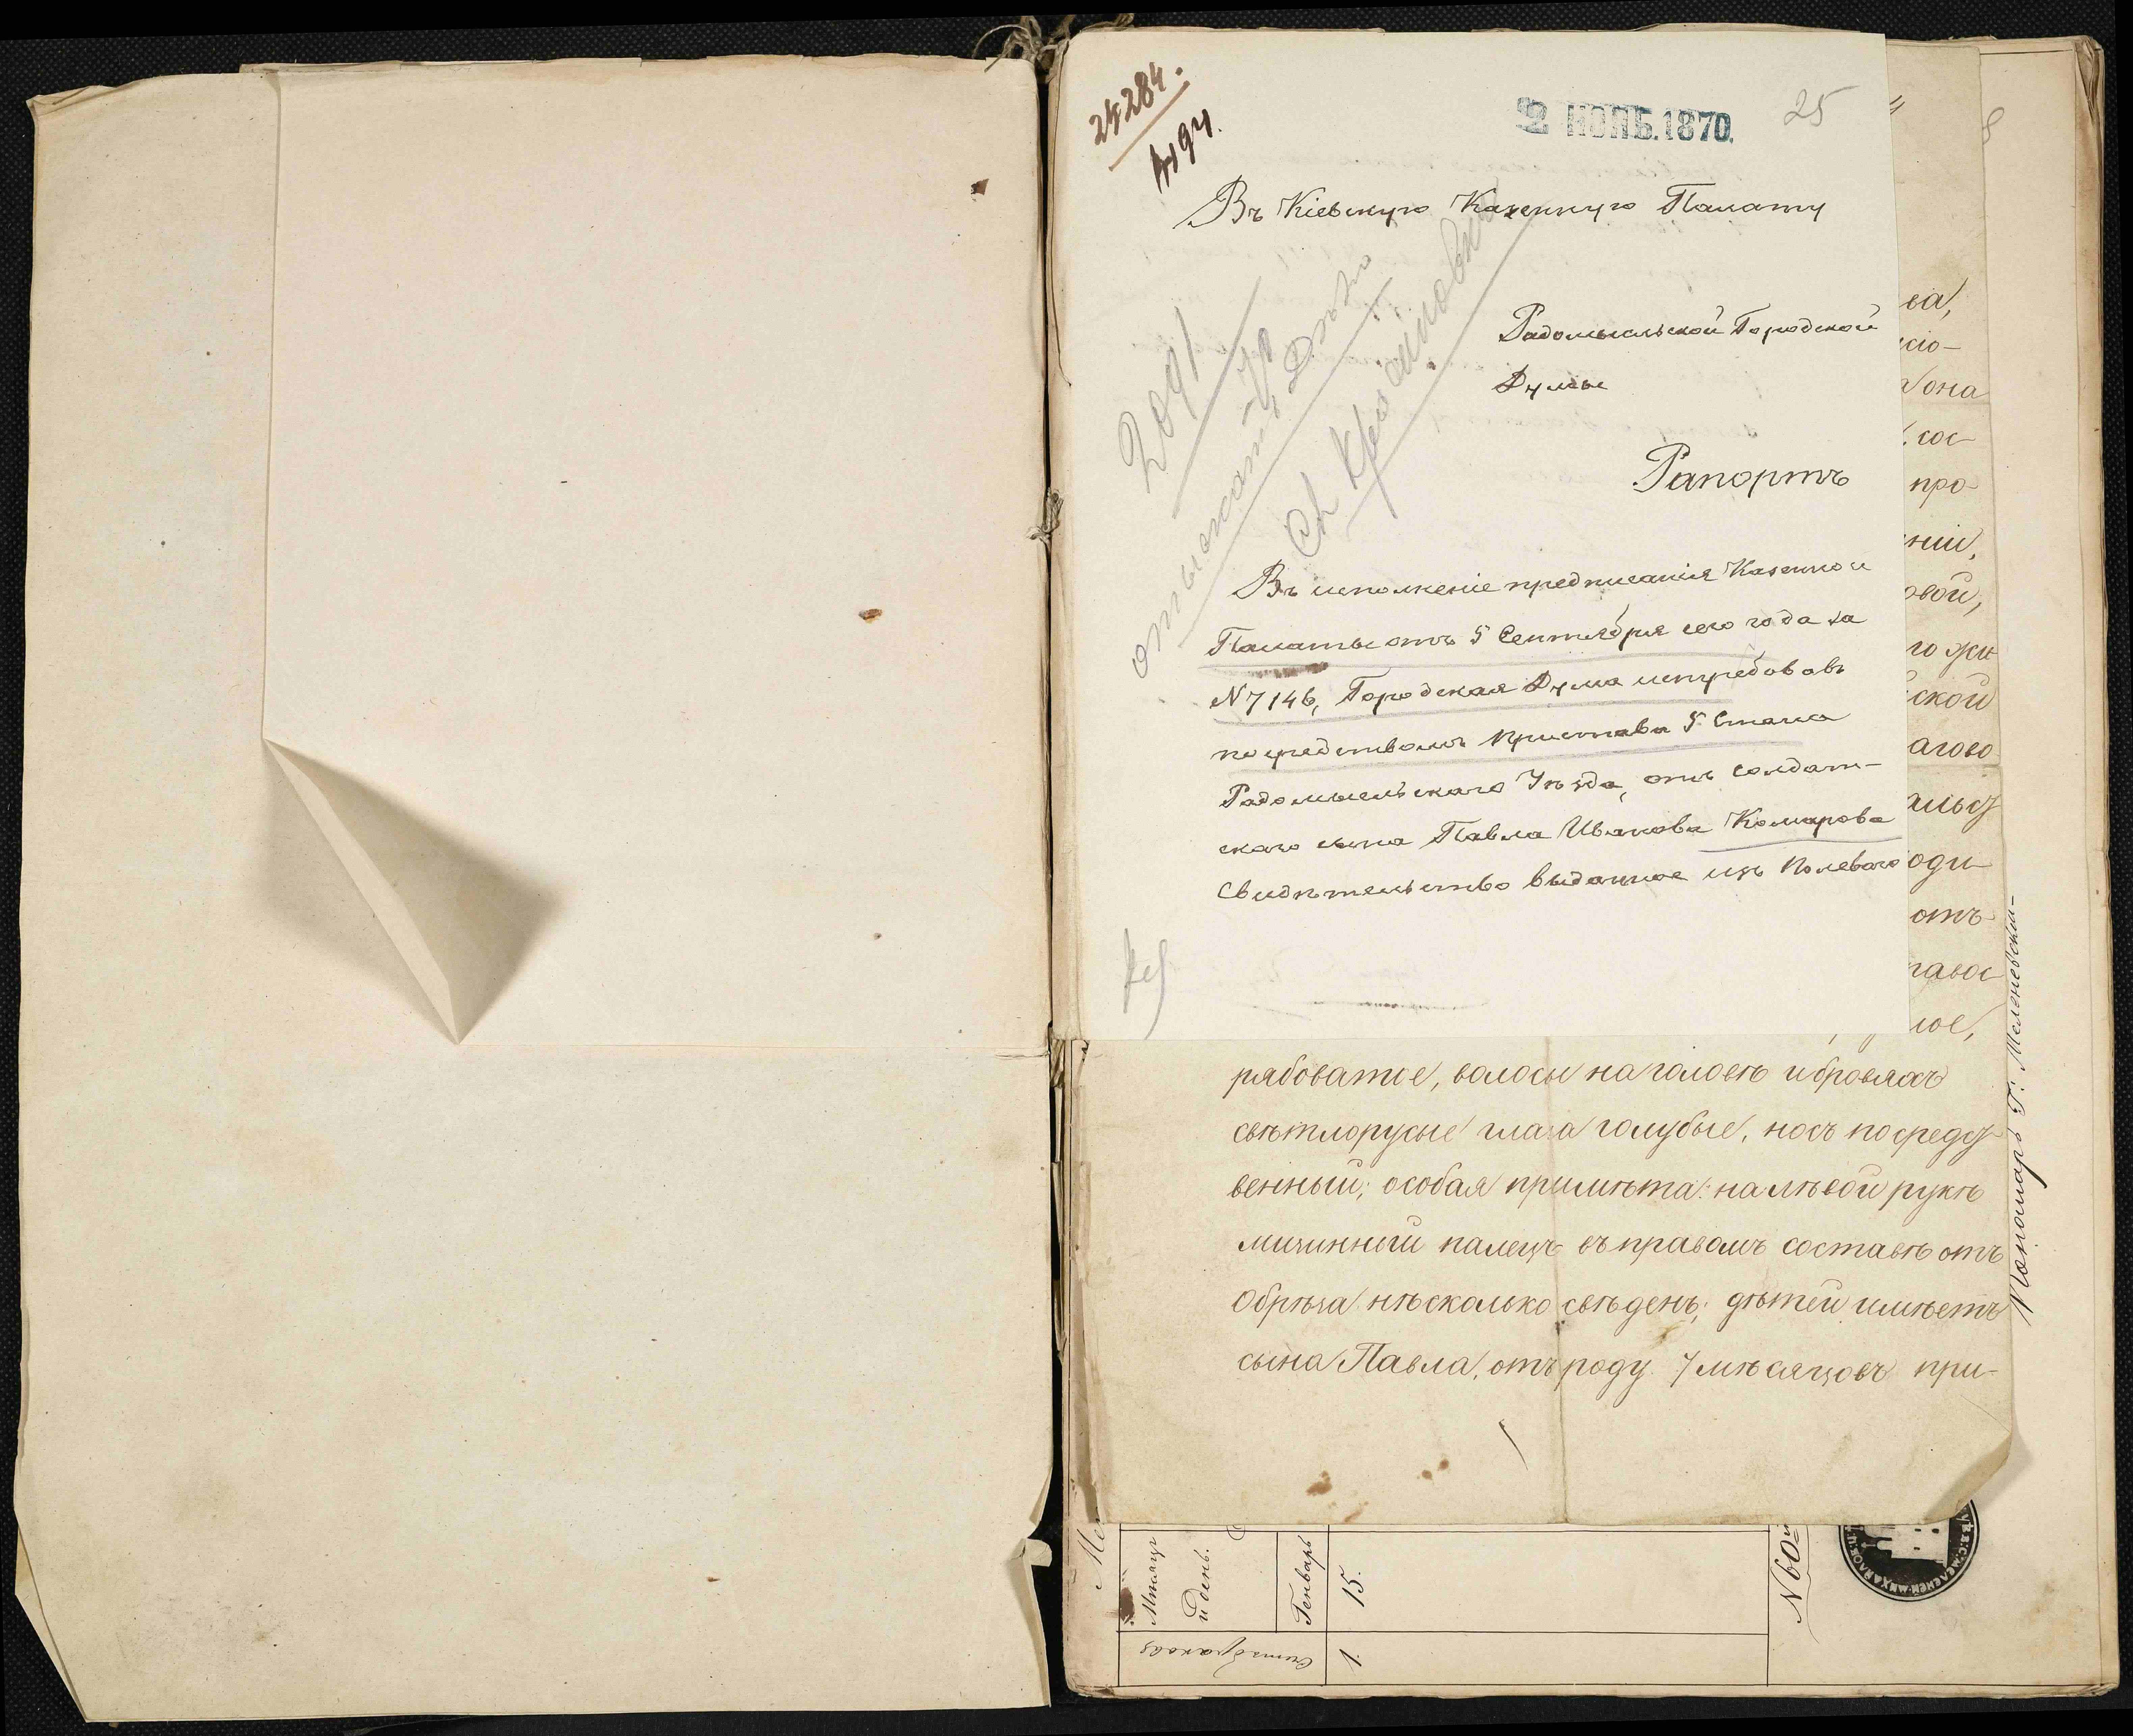 24284.
4194.
2 НОЯБ. 1870.
25
Въ Кіевскую Казенную Палату
Радомысльской Городской
Думы
Рапортъ
2091
Въ исполненіе предписанія Казенной
Палаты отъ 5 Сентября сего года за
N 7146, Городская Дума истребовавъ
посредствомъ Пристава 5 Стана
Радомысльскаго Уѣзда, отъ солдат-
скаго сына Павла Иванова Комарова
Свидѣтельство выданное изъ Полеваго
ва,
сіо-
она
сос
про-
ніи,
овой,
го жи
ской
агово
оди
отъ
ное,
рябоватое, волосы на головѣ и бровяхъ
свѣтлорусые глаза голубые, носъ посредст
венный; особая примѣта: на лѣвой рукѣ
мизинный палецъ въ правомъ составѣ отъ
обрѣза нѣсколько сведенъ; дѣтей имѣетъ
сына Павла, отъ роду 7 мѣсяцовъ при-
Пономарь Г. Меленевскій
Мѣсяцъ
и день.
Генварь
15.
Счетъ браковъ
1.
N 60й